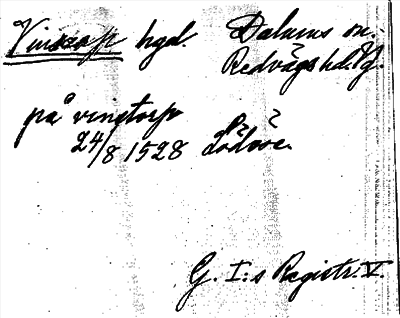 Vinstorp hgd. Dalums sn.
Redvägs hd. Vg.
på vingtorp
24/8 1528 Lödöse.
G. I:s Registr. V.